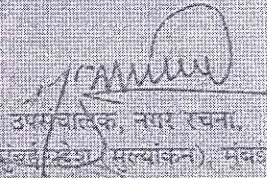 उपसंचालक, नगर रचना,
(मूल्यांकन), मुंबई